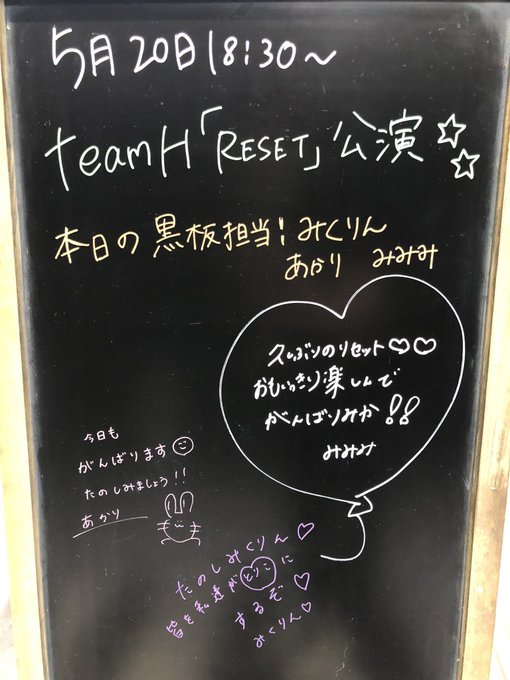 5月20日18:30～
teamH「RESET」公演☆☆
本日の黒板担当!みくりん
あかり みみみ
久しぶりのリセット♡♡
おもいっきり楽しんで
がんばりみか!!
みみみ
今日も
がんばります
たのしみましょう!!
あかり
たのしみくりん♡
皆を私達がとりこに
するぞ♡
みくりん♡